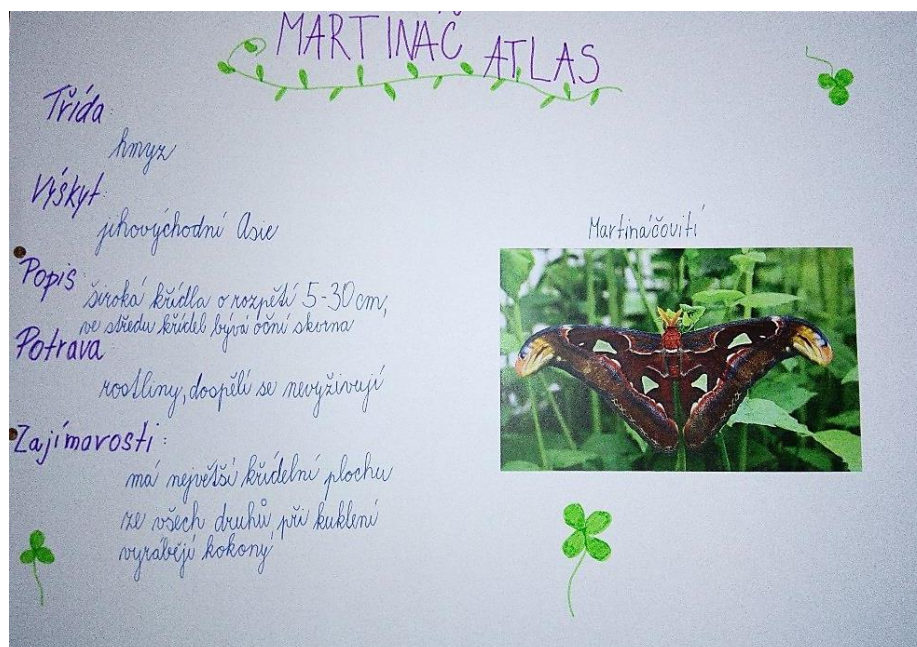 MARTINÁČ ATLAS
Třída:
hmyz
Výskyt:
jihovýchodní Asie
Popis
široká křídla o rozpětí 5-30 cm,
ve středu křídel bývá oční skvrna
Potrava
rostliny, dospělí se nevyživují
Zajímavosti:
má největší křídelní plochu
ze všech druhů, při kuklení
vyrábějí kokony
Martináčovití